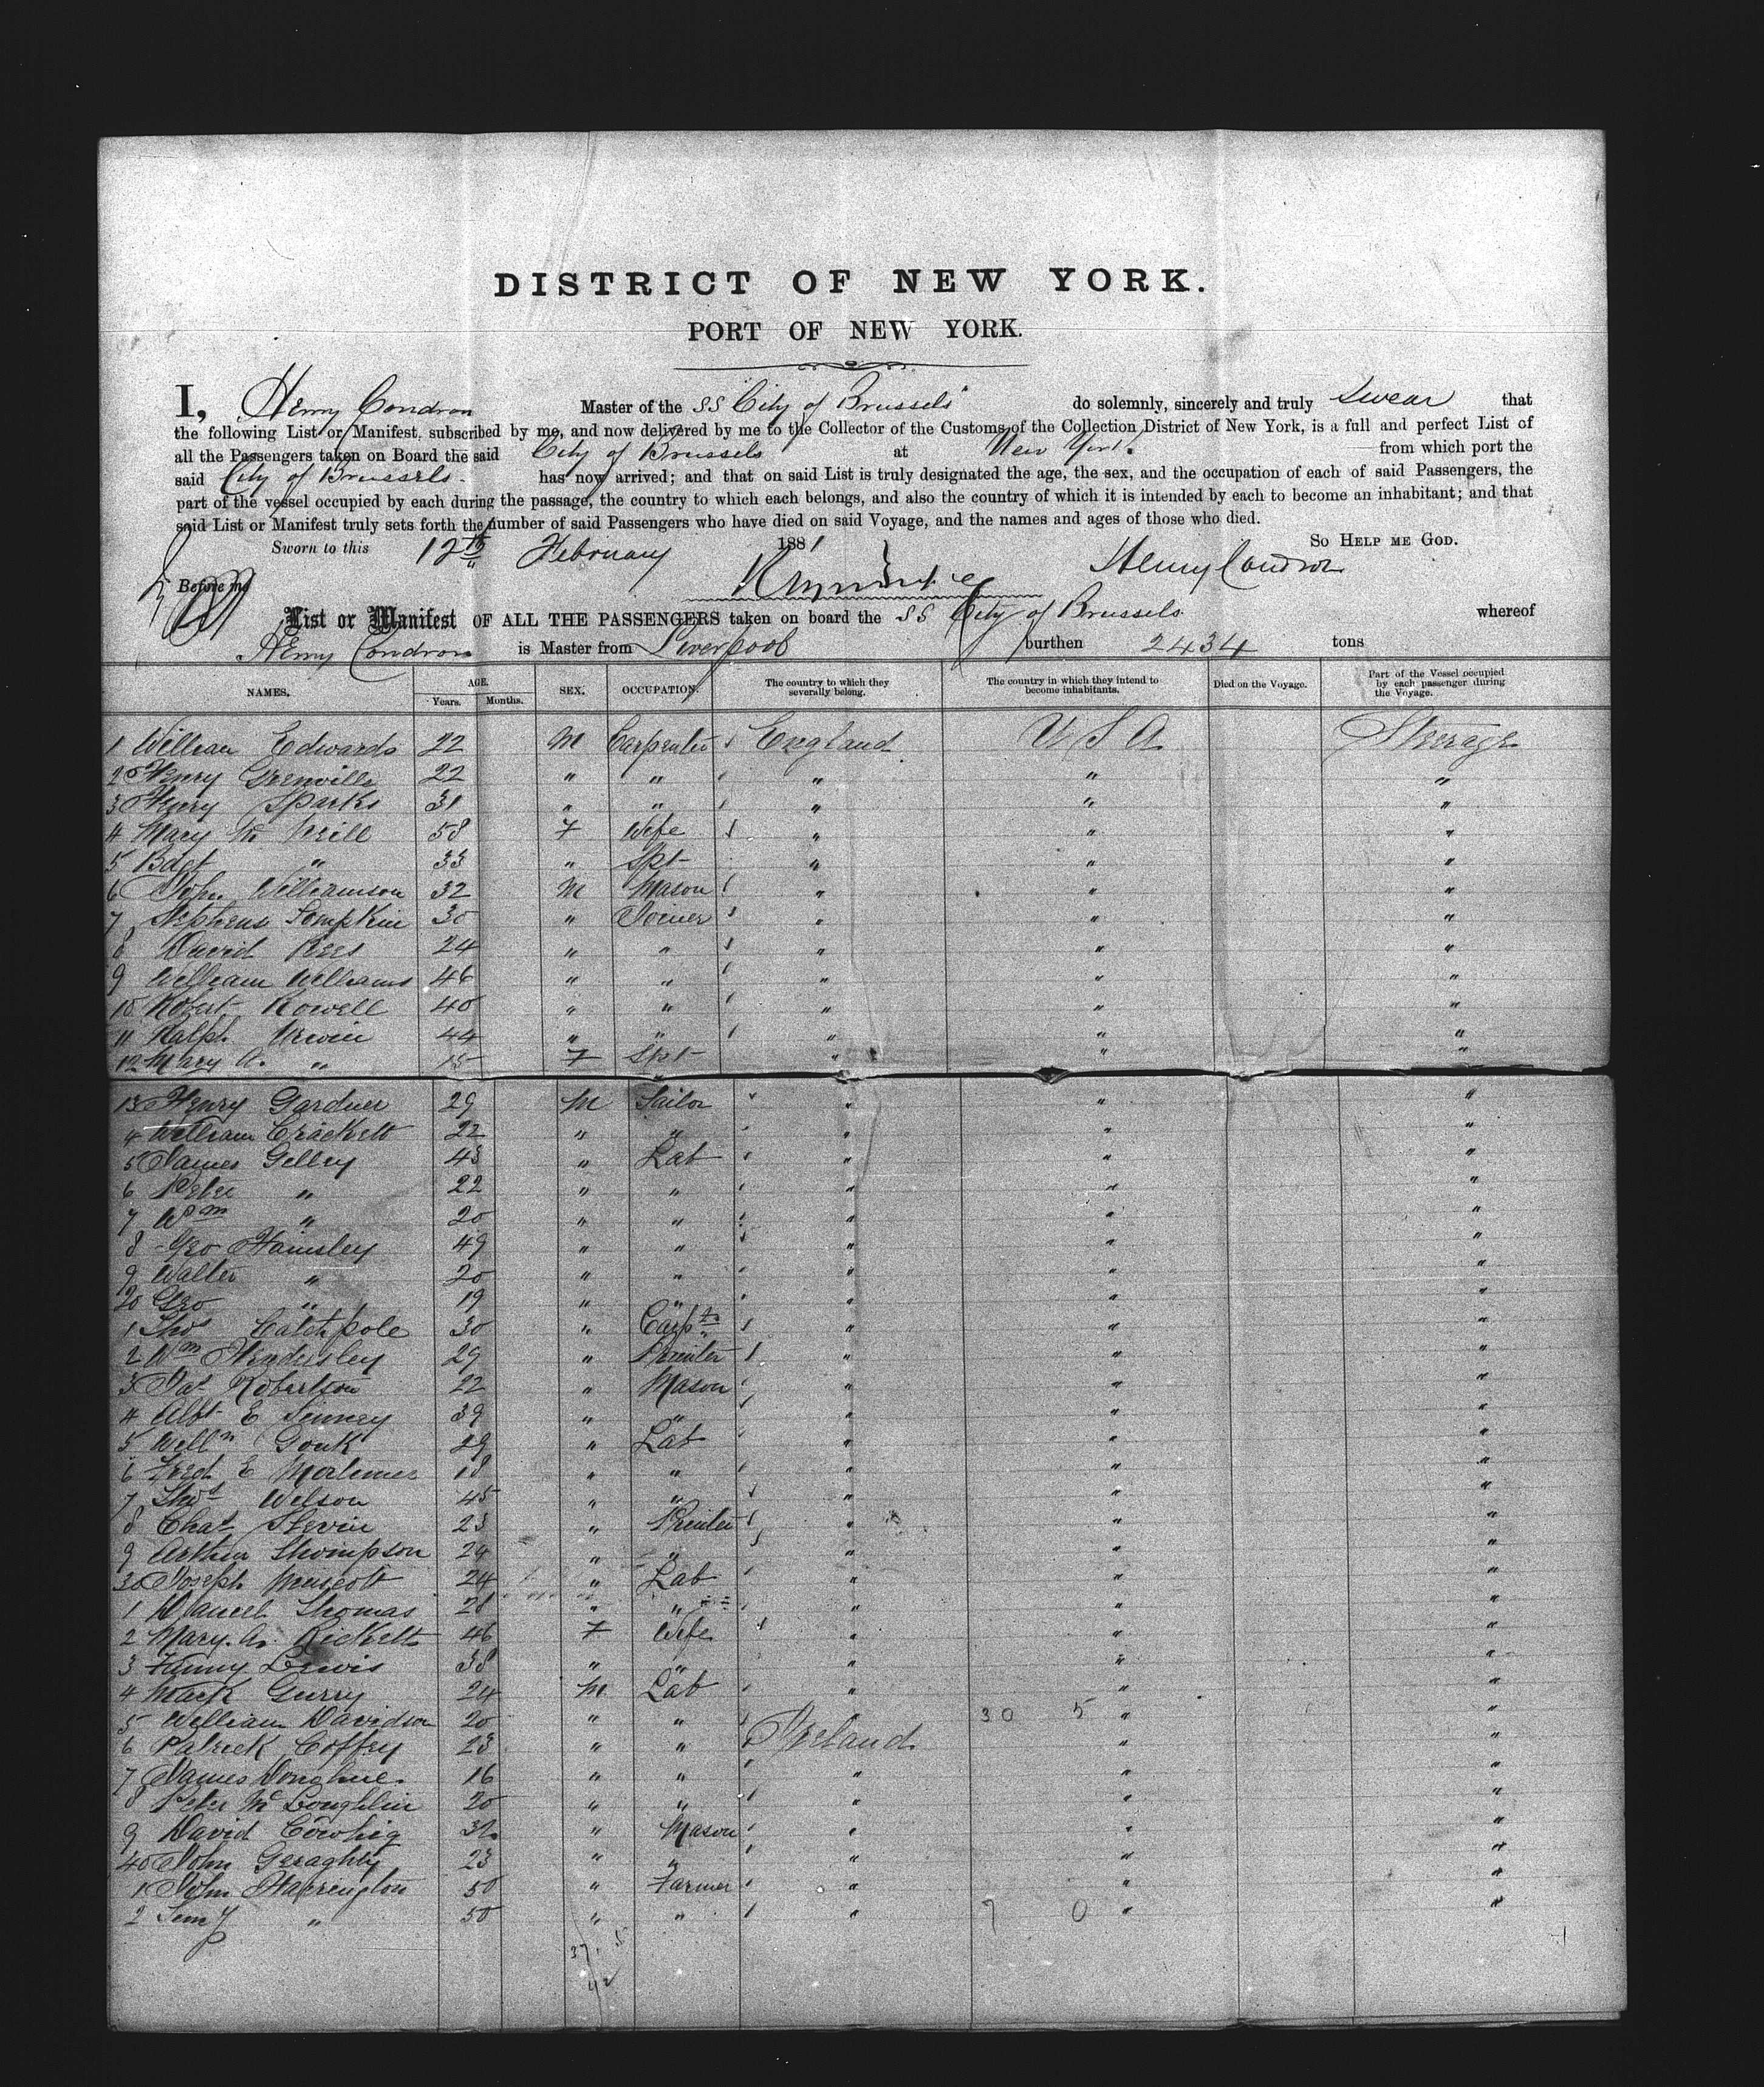 DISTRICT OF NEW YORK.
PORT OF NEW YORK.
I, Henry Condron Master of the SS "City of Brussels" do solemnly, sincerely and truly swear that
the following List or Manifest, subscribed by me, and now delivered by me to the Collector of the Customs of the Collection District of New York, is a full and perfect List of
all the Passengers taken on Board the said City of Brussels at New York. from which port the
said City of Brussels. has now arrived; and that on said List is truly designated the age, the sex, and the occupation of each of said Passengers, the
part of the vessel occupied by each during the passage, the country to which each belongs, and also the country of which it is intended by each to become an inhabitant; and that
said List or Manifest truly sets forth the number of said Passengers who have died on said Voyage, and the names and ages of those who died.
Sworn to this 12th February 1881 So HELP ME GOD.
Before me Henry Condron
List or Manifest OF ALL THE PASSENGERS taken on board the SS City of Brussels whereof
Henry Condron is Master from Liverpool burthen 2434 tons
NAMES. AGE. Years. Months. SEX. OCCUPATION. The country to which they severally belong. The country in which they intend to become inhabitants. Died on the Voyage. Part of the Vessel occupied by each passenger during the Voyage.
1 William Edwards 22 M Carpenter England U S A Steerage
2 Henry Grenville 22 " " " " "
3 Henry Sparks 31 " " " " "
4 Mary Mc Neill 58 F Wife " " "
5 Bdgt " 33 " Spt " " "
6 John Williamson 32 M Mason " " "
7 Stephens Tompkin 30 " Joiner " " "
8 David Rees 24 " " " " "
9 William Williams 46 " " " " "
10 Robert Rowell 40 " " " " "
11 Ralph Urwin 44 " " " " "
12 Mary A. " 15 F Spt " " "
13 Henry Gardner 29 M Sailor " " "
4 William Crackett 22 " " " " "
5 James Gelley 43 " Lab " " "
6 Peter " 22 " " " " "
7 Wm " 20 " " " " "
8 Geo Hainsley 49 " " " " "
9 Walter " 20 " " " " "
20 Geo " 19 " " " " "
1 Thos Catchpole 30 " Carptr " " "
2 Wm Hindusley 29 " Printer " " "
3 Jas Robertson 22 " Mason " " "
4 Albt E 39 " " " " "
5 Willm Gouk 29 " Lab " " "
6 Fred E Mortimer 18 " " " " "
7 Thos Wilson 45 " " " " "
8 Chas 23 " Printer " " "
9 Arthur Thompson 24 " " " " "
30 Joseph Muscott 24 " Lab " " "
1 Daniel Thomas 28 " " " " "
2 Mary. A. Ricketts 46 F Wife " " "
3 Fanny Lewis 38 " " " " "
4 Mark Gurry 24 M Lab " " "
5 William Davidson 20 " " 30 5 " "
6 Patrick Coffey 23 " " Ireland " "
7 James Donohue. 16 " " " " "
8 Peter Mc Loughlin 20 " " " " "
9 David Cowhig " Mason " " "
40 John Geraghty 23 " " " " "
1 John Harrington 50 " Farmer " " "
2 " 50 " " " 7 0 " "
37. 5
42